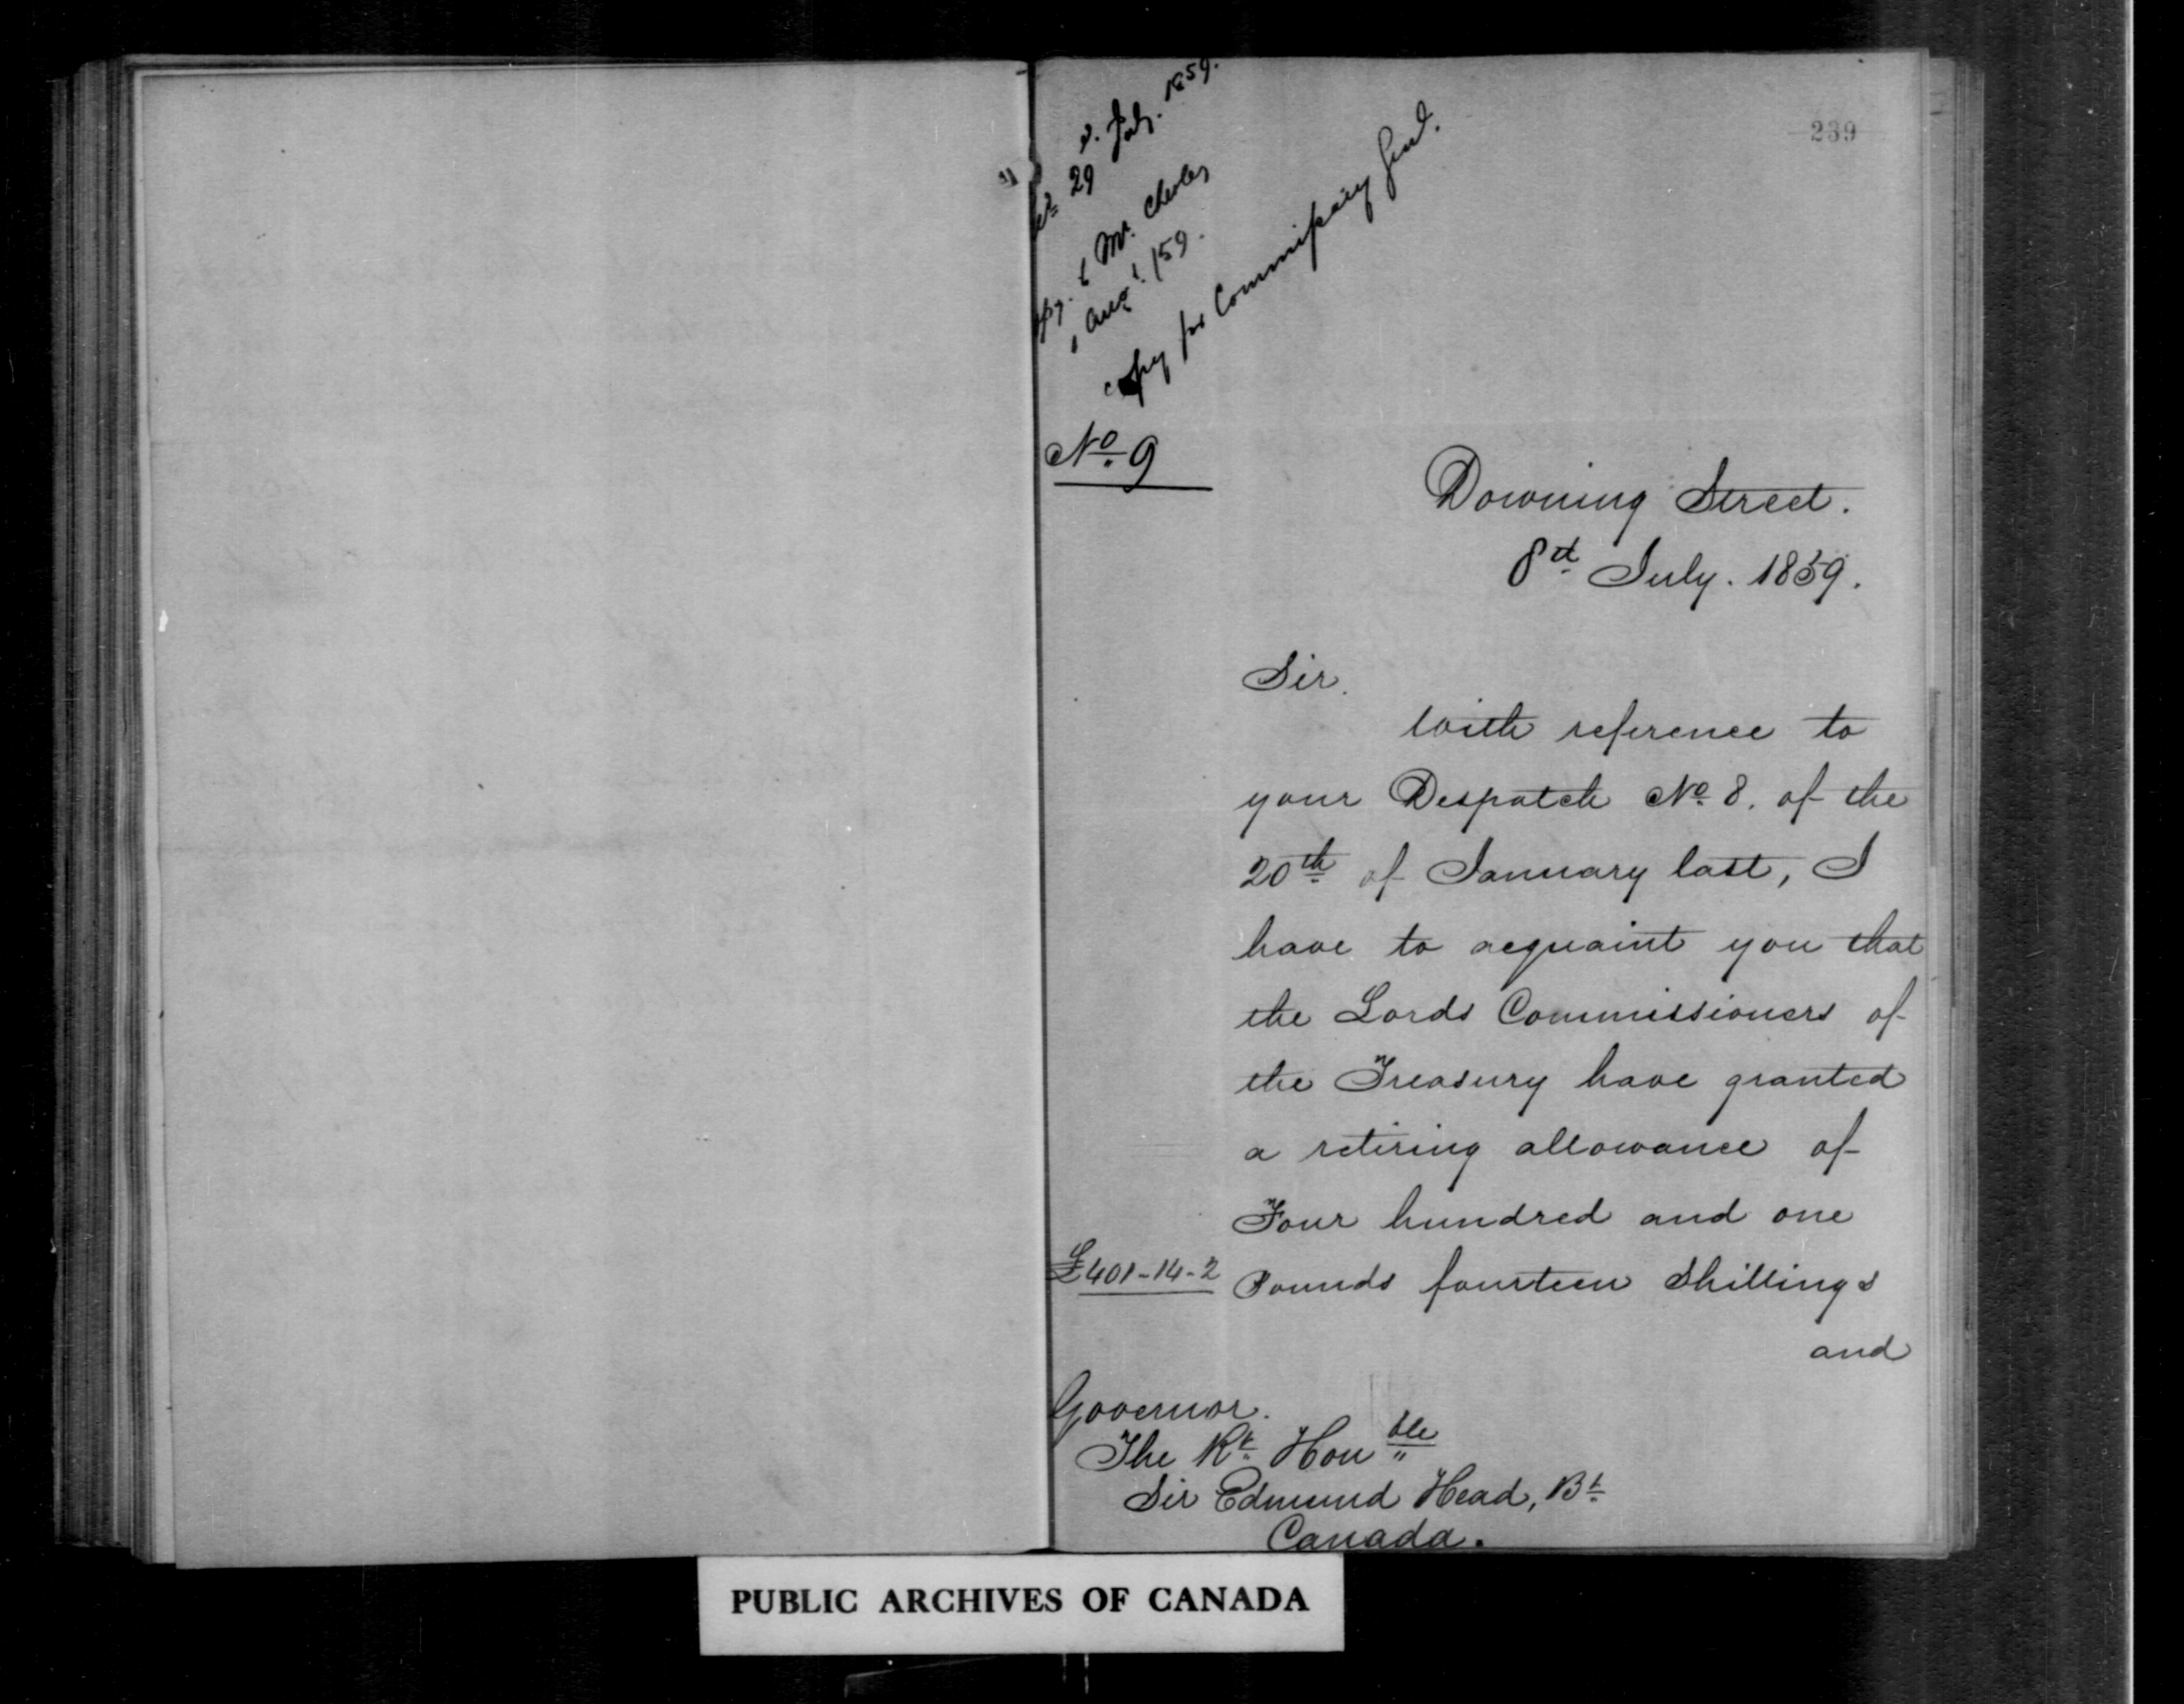 239
29 July. 1859.
Mr.
Augt. /59.
copy for Commissary Genl.
No. 9
Downing Street.
8th July. 1859.
Sir.
With reference to
your Despatch No. 8. of the
20th of January last, I
have to acquaint you that
the Lords Commissioners of
the Treasury have granted
a retiring allowance of
Four hundred and one
£401-14-2 Pounds fourteen Shillings
and
Governor.
The Rt. Honble
Sir Edmund Head, Bt.
Canada.
PUBLIC ARCHIVES OF CANADA